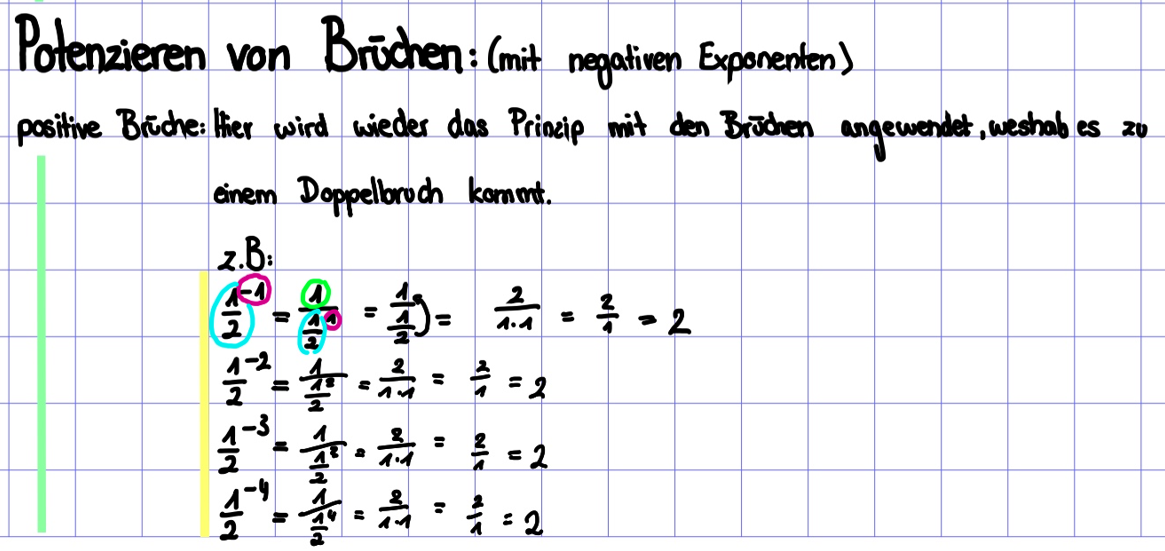 Potenzieren von Brüchen: (mit negativen Exponenten)
positive Brüche: Hier wird wieder das Prinzip mit den Brüchen angewendet, weshab es zu
einem Doppelbruch kommt.
z.B:
1/2^-1 = 1/(1/2^1) = 1/(1/2) = 2/(1·1) = 2/1 = 2
1/2^-2 = 1/(1^2/2) = 2/(1·1) = 2/1 = 2
1/2^-3 = 1/(1^3/2) = 2/(1·1) = 2/1 = 2
1/2^-4 = 1/(1^4/2) = 2/(1·1) = 2/1 = 2